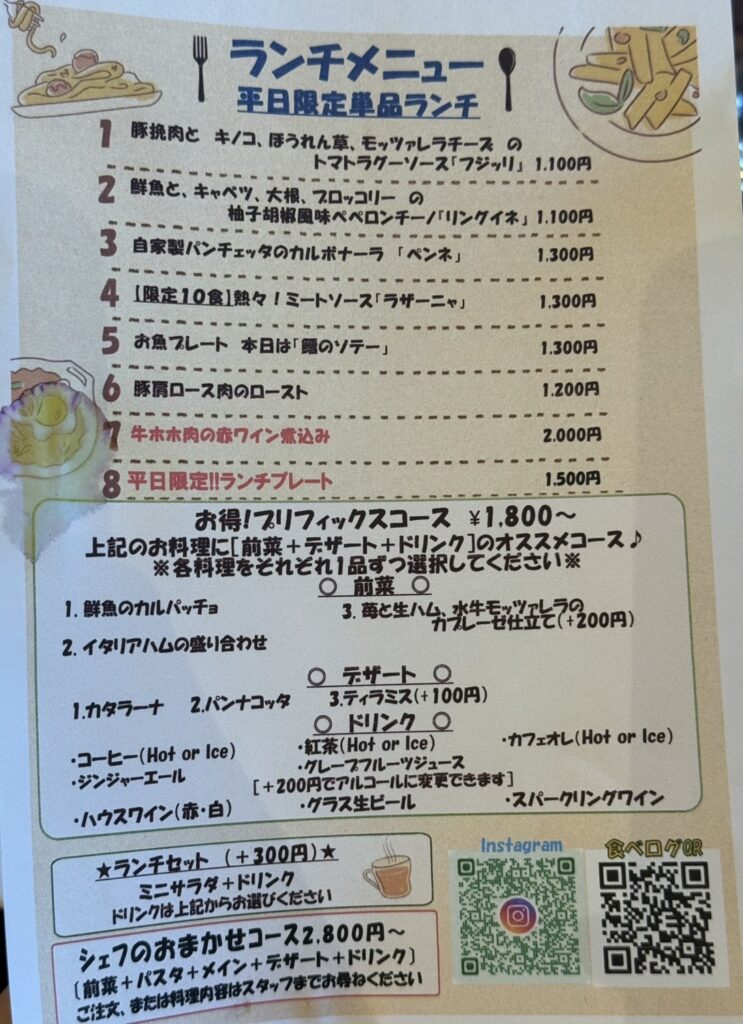 ランチメニュー
平日限定単品ランチ
1 豚挽肉と キノコ、ほうれん草、モッツァレラチーズ の
トマトラグーソース「フジッリ」 1.100円
2 鮮魚と、キャベツ、大根、ブロッコリー の
柚子胡椒風味ペペロンチーノ「リングイネ」 1.100円
3 自家製パンチェッタのカルボナーラ 「ペンネ」 1.300円
4 【限定10食】熱々!ミートソース「ラザーニャ」 1.300円
5 お魚プレート 本日は「鱈のソテー」 1.300円
6 豚肩ロース肉のロースト 1.200円
7 牛ホホ肉の赤ワイン煮込み 2.000円
8 平日限定!!ランチプレート 1.500円
お得!プリフィックスコース ¥1.800〜
上記のお料理に[前菜+デザート+ドリンク]のオススメコース♪
※各料理をそれぞれ1品ずつ選択してください※
○ 前菜 ○
1. 鮮魚のカルパッチョ 3. 苺と生ハム、水牛モッツァレラの
カプレーゼ仕立て(+200円)
2. イタリアハムの盛り合わせ
○ デザート ○
1.カタラーナ 2.パンナコッタ 3.ティラミス(+100円)
○ ドリンク ○
・コーヒー(Hot or Ice) ・紅茶(Hot or Ice) ・カフェオレ(Hot or Ice)
・ジンジャーエール ・グレープフルーツジュース
[+200円でアルコールに変更できます]
・ハウスワイン(赤・白) ・グラス生ビール ・スパークリングワイン
★ランチセット (+300円)★
ミニサラダ+ドリンク
ドリンクは上記からお選びください
Instagram 食べログQR
シェフのおまかせコース2.800円〜
[前菜+パスタ+メイン+デザート+ドリンク]
ご注文、または料理内容はスタッフまでお尋ねください